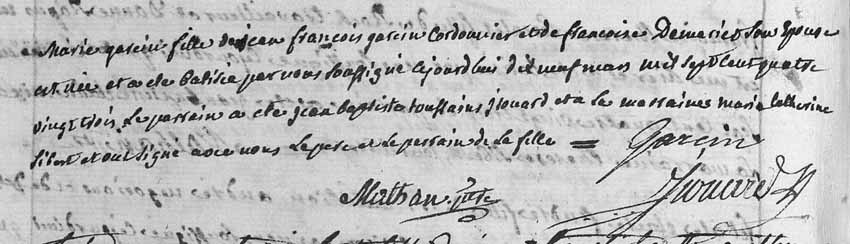 Marie garcin fille de jean françois garcin Cordonnier et de francoise Demaries son Epouse
est née et a ete batisée par nous soussigné cejourdhui dix neuf mars mil sept cent quatre
vingt trois Le parrein a ete jean baptiste toussains jiouard et a le marraines marie Catherine
Sibert et ont signé avec nous Le pere et Le perrain de La fille = Garcin
Mathan ptre Jiouard